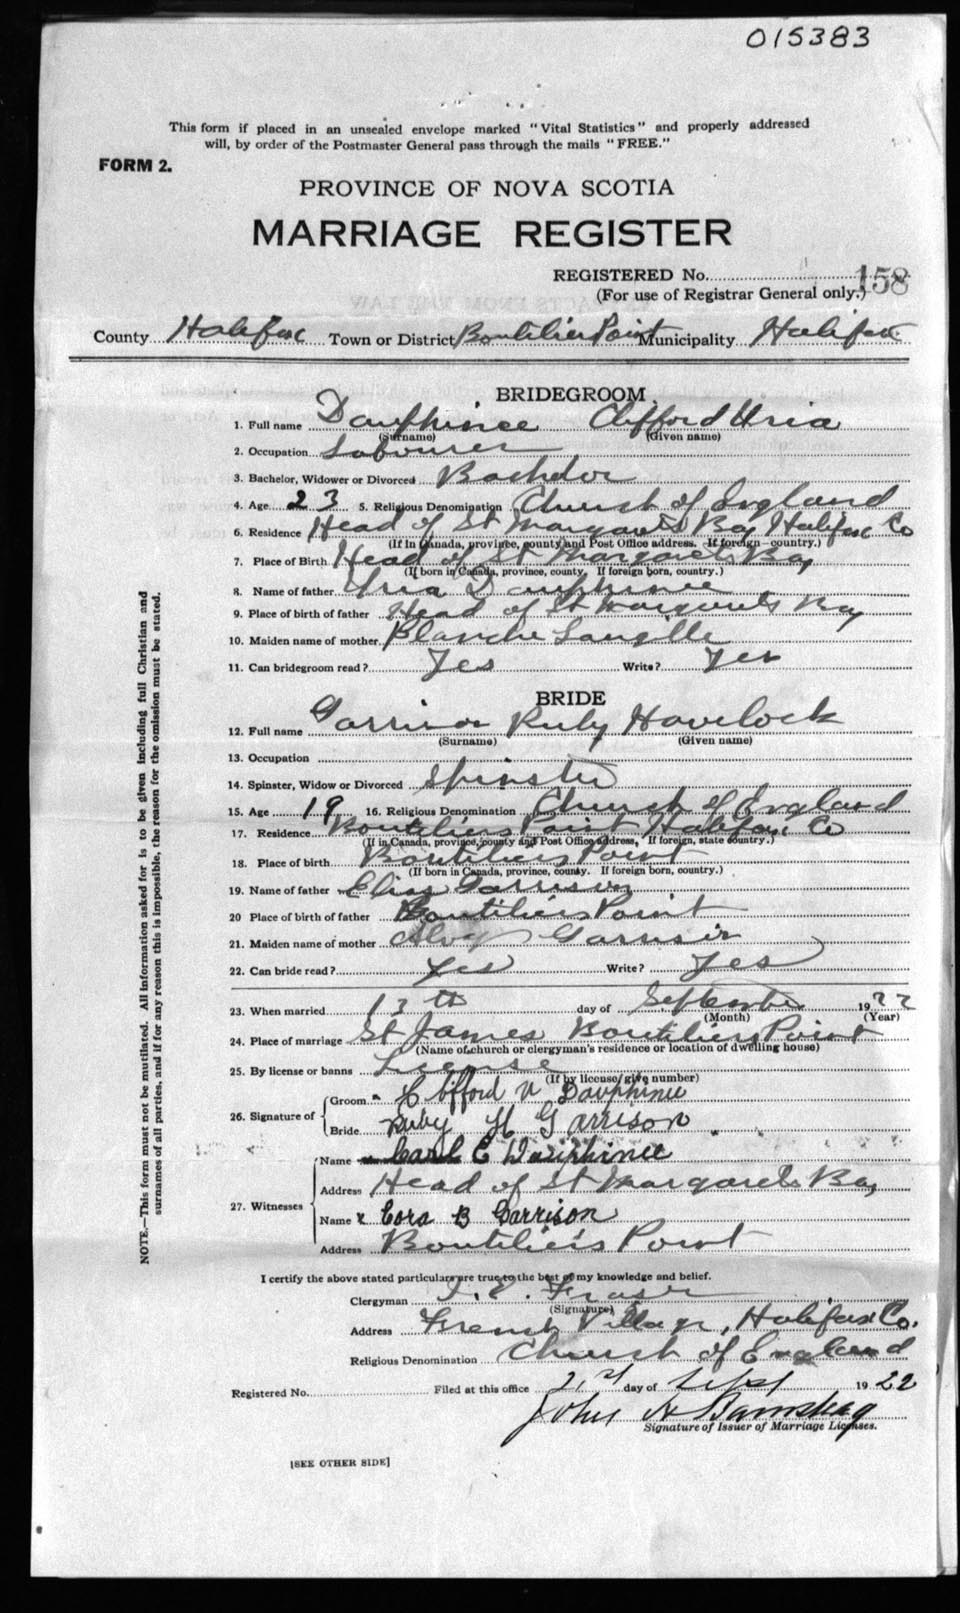 015383
This form if placed in an unsealed envelope marked "Vital Statistics" and properly addressed
will, by order of the Postmaster General pass through the mails "FREE."
FORM 2.
PROVINCE OF NOVA SCOTIA
MARRIAGE REGISTER
REGISTERED No. 158
(For use of Registrar General only.)
County Halifax Town or District Boutiliers Point Municipality Halifax
BRIDEGROOM
1. Full name Dauphinee Clifford Uria
(Surname) (Given name)
2. Occupation Labourer
3. Bachelor, Widower or Divorced Bachelor
4. Age 23 5. Religious Denomination Church of England
6. Residence Head of St Margarets Bay Halifax Co
(If In Canada, province, county and Post Office address. If foreign—country.)
7. Place of Birth Head of St Margarets Bay
(If born in Canada, province, county. If foreign born, country.)
8. Name of father Uria Dauphinee
9. Place of birth of father Head of St Margarets Bay
10. Maiden name of mother Blanche Langille
11. Can bridegroom read? Yes Write? Yes
BRIDE
12. Full name Garrison Ruby Havelock
(Surname) (Given name)
13. Occupation
14. Spinster, Widow or Divorced Spinster
15. Age 19 16. Religious Denomination Church of England
17. Residence Boutiliers Point Halifax Co
(If in Canada, province, county and Post Office address, If foreign, state country.)
18. Place of birth Boutiliers Point
(If born in Canada, province, county. If foreign born, country.)
19. Name of father Elias Garrison
20 Place of birth of father Boutiliers Point
21. Maiden name of mother Garrison
22. Can bride read? Yes Write? Yes
23. When married 13th day of September 1922
(Month) (Year)
24. Place of marriage St James Boutiliers Point
(Name of church or clergyman's residence or location of dwelling house)
25. By license or banns License
(If by license, give number)
26. Signature of Groom Clifford U Dauphinee
Bride Ruby H Garrison
27. Witnesses Name Carl E Dauphinee
Address Head of St Margarets Bay
Name x Cora B Garrison
Address Boutiliers Point
I certify the above stated particulars are true to the best of my knowledge and belief.
Clergyman T. E. Fraser
(Signature)
Address French Village, Halifax Co.
Religious Denomination Church of England
Registered No. Filed at this office 21st day of Sept 1922
John A
Signature of Issuer of Marriage Licenses.
[SEE OTHER SIDE]
NOTE.—This form must not be mutilated. All information asked for is to be given including full Christian and
surnames of all parties, and if for any reason this is impossible, the reason for the omission must be stated.